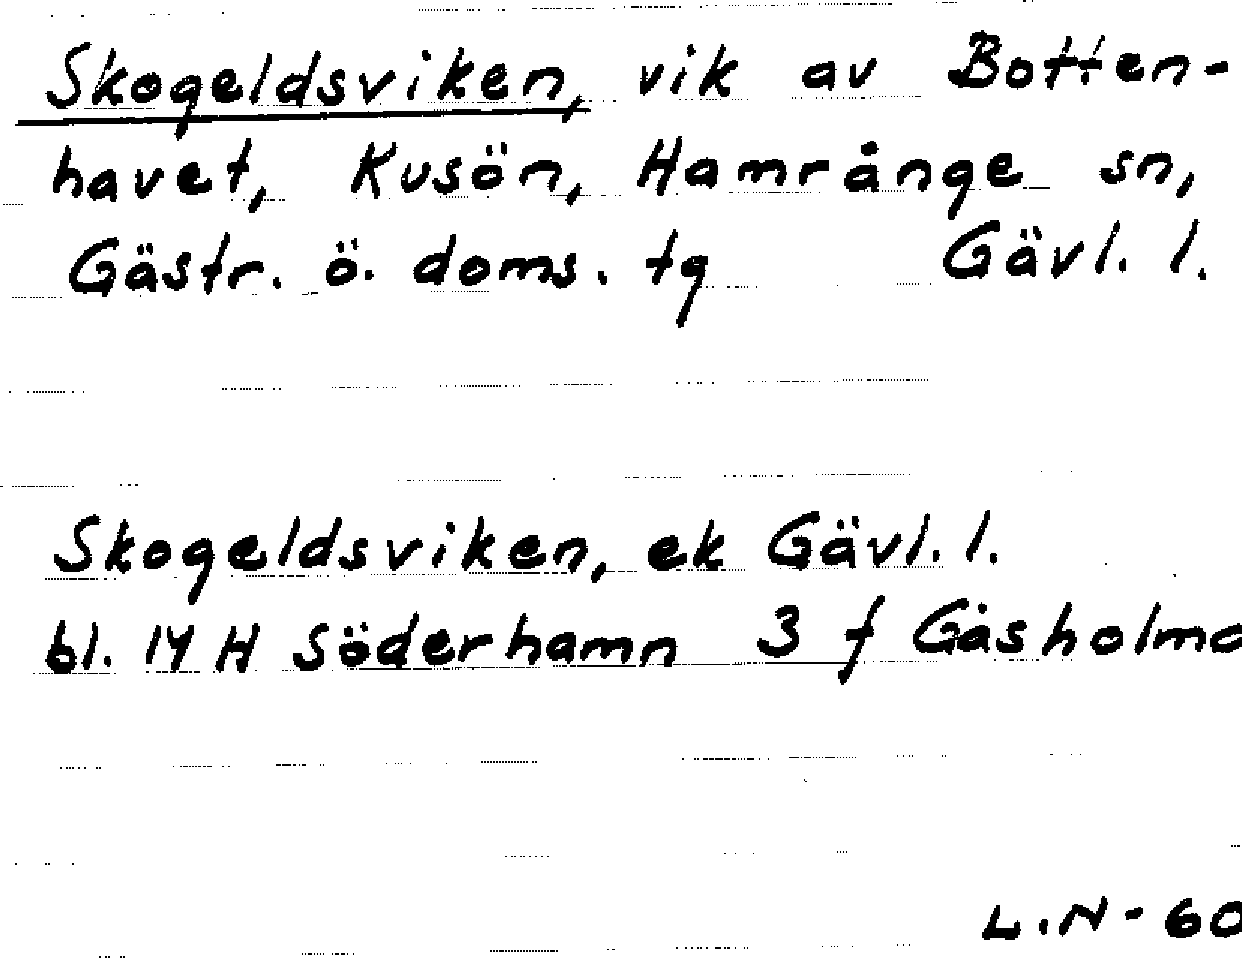 Skogeldsviken, vik av Botten-
havet, Kusön, Hamrånge sn,
Gästr. ö. doms. tg Gävl. l.
Skogeldsviken, ek Gävl. l.
bl. 14 H Söderhamn 3 f Gåsholma
L.N-60